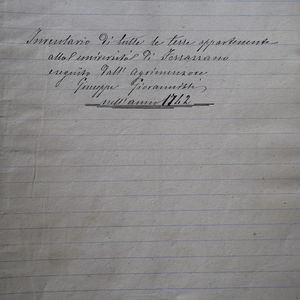 Inventario di tutte le terre appartenente
all'università di Ferrazzano
eseguito dall'agrimensore
Giuseppe
nell'anno 1742